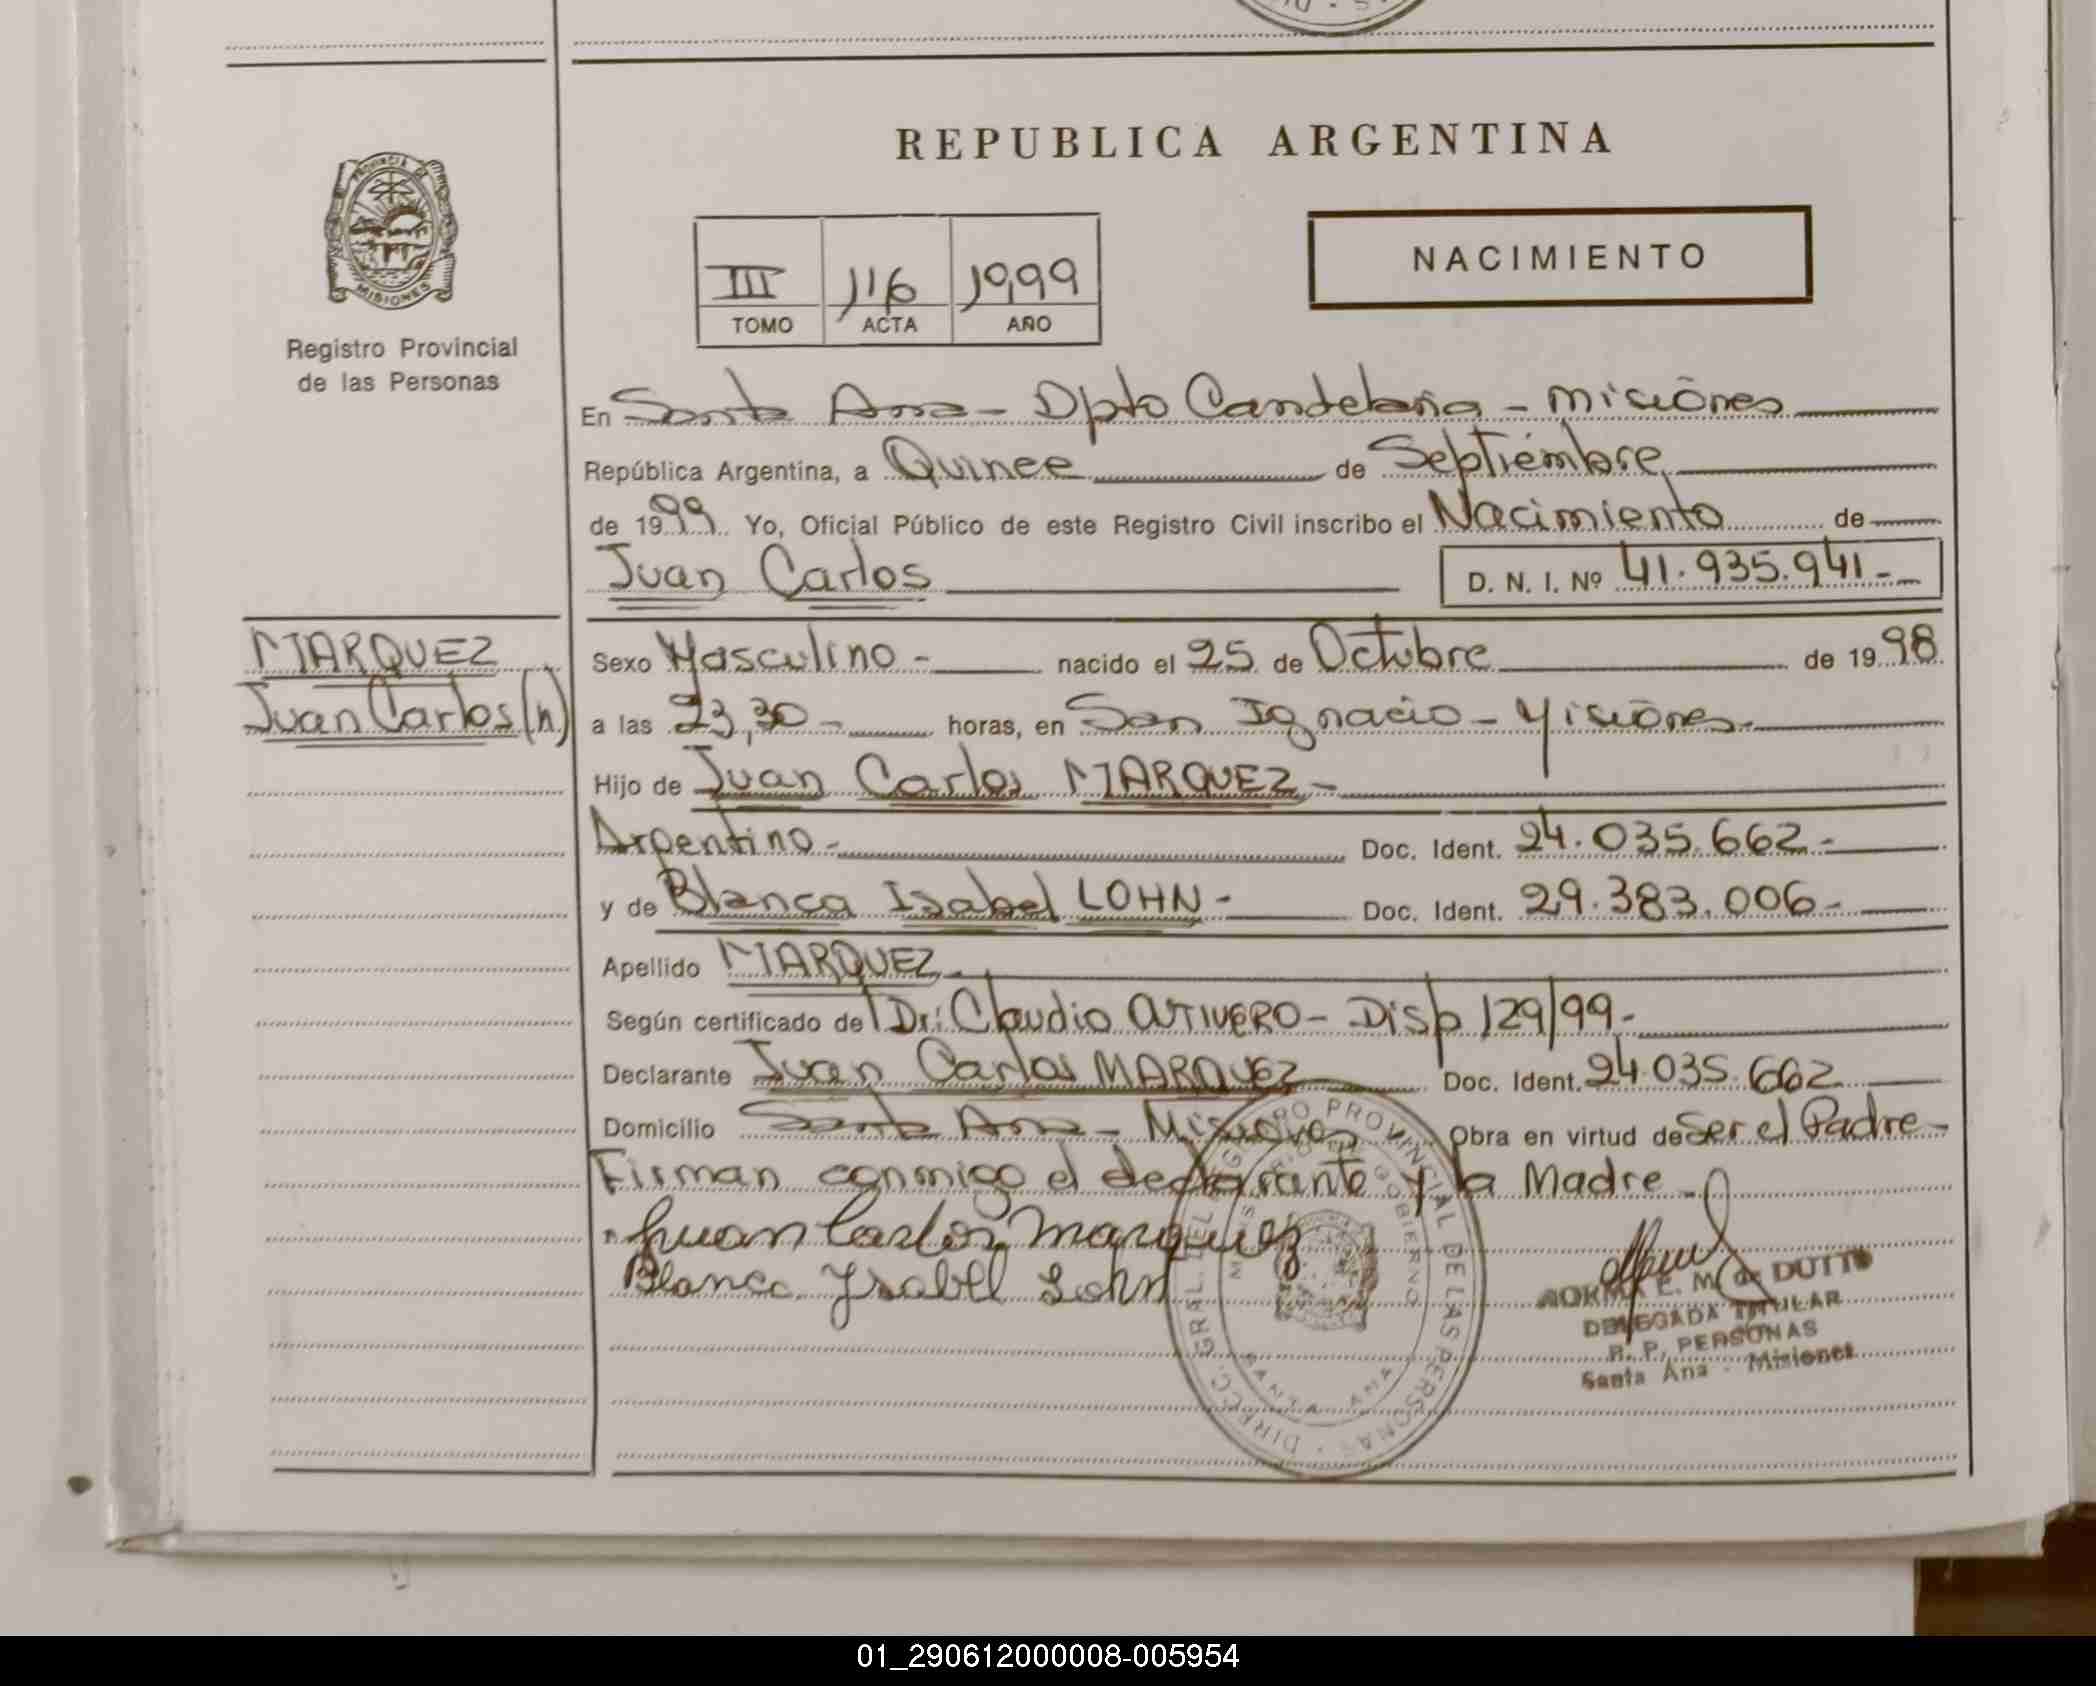 REPUBLICA ARGENTINA
PROVINCIA DE
MISIONES
Registro Provincial
de las Personas
III 116 1999
TOMO ACTA AÑO
NACIMIENTO
En Santa Ana - Dpto Candelaria - Misiones
República Argentina, a Quince de Septiembre
de 1999 Yo, Oficial Público de este Registro Civil inscribo el Nacimiento de
Juan Carlos D. N. I. Nº 41.935.941-
MARQUEZ
Juan Carlos (h)
Sexo Masculino - nacido el 25 de Octubre de 1998
a las 23,30 - horas, en San Ignacio - Misiones -
Hijo de Juan Carlos MARQUEZ -
Argentino - Doc. Ident. 24.035.662 -
y de Blanca Isabel LOHN - Doc. Ident. 29.383.006 -
Apellido MARQUEZ -
Según certificado de Dr: Claudio - Disp 129/99 -
Declarante Juan Carlos MARQUEZ Doc. Ident. 24.035.662
Domicilio Santa Ana - Misiones Obra en virtud de Ser el Padre -
Firman conmigo el declarante y la Madre -
Juan Carlos Marquez
Blanca Ysabel Lohn
DIRECC. GRAL. DEL REGISTRO PROVINCIAL DE LAS PERSONAS
MINISTERIO DE GOBIERNO
SANTA ANA
NORMA E. M. de DUTTO
DELEGADA TITULAR
R. P. PERSONAS
Santa Ana - Misiones
01_290612000008-005954